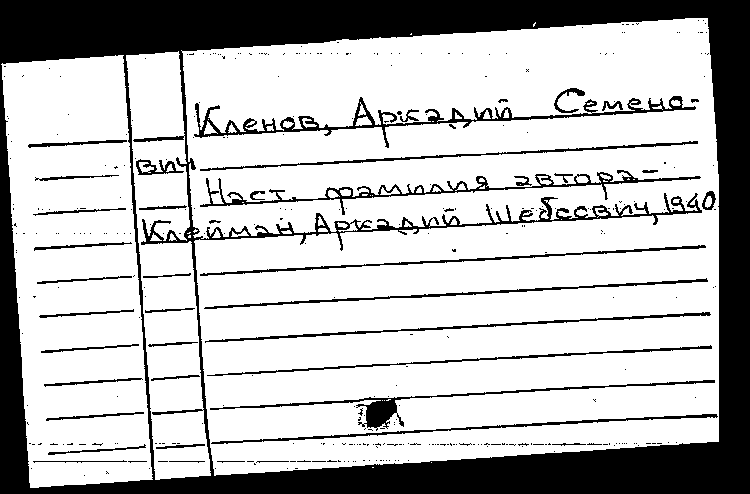 Кленов, Аркадий Семено-
вич
Наст. фамилия автора-
Клейман, Аркадий Шебсович, 1940